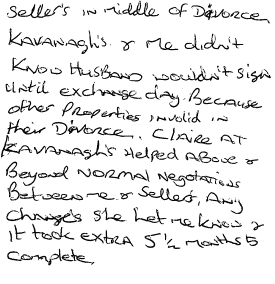 Seller's in middle of Divorce
Kavanagh's & me didn't
Know Husband wouldn't sign
until exchange day. Because
other Properties involid in
their Divorce. Claire AT
Kavanagh's Helped Above &
Beyond normal Negotations
Between me & Sellers, Any
Change's she let me know &
it took extra 5½ months to
complete